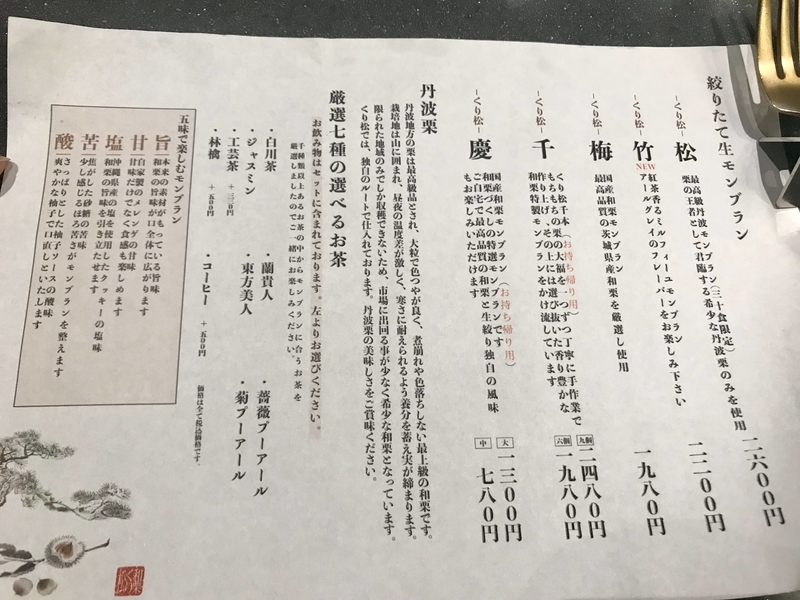 絞りたて生モンブラン
最高級丹波モンブラン(三十食限定) 二六〇〇円
栗の王者として君臨する希少な丹波栗のみを使用
-くり松- 松
紅茶香るミルフィーユモンブラン 二二〇〇円
アールグレイのフレーバーをお楽しみ下さい
-くり松- 竹 NEW
国産和栗モンブラン 一九八〇円
最高品質の茨城県産和栗を厳選し使用
-くり松- 梅
くり松千本(お持ち帰り用) 九個 二四八〇円
もちもちの栗の大福を一つずつ丁寧に手作業で 六個 一九八〇円
作り上げ、その上には選び抜いた香り豊かな
和栗特製モンブランをかけ流しています
-くり松- 千
国産和栗モンブラン(お持ち帰り用) 大 一三〇〇円
和栗づくしの特選モンブランです 中 七八〇円
ご自宅で最高品質の和栗と生絞り独自の風味
もお楽しみいただけます
-くり松- 慶
丹波栗
丹波地方の栗は最高級品とされ、大粒で色つやが良く、煮崩れや色落ちしない最上級の和栗です。
栽培地は山に囲まれ、昼夜の温度差が激しく、寒さに耐えられるよう養分を蓄え実が締まります。
限られた地域のみでしか収穫できないため、市場に出回る事が少なく希少な和栗となっています。
くり松では、独自のルートで仕入れております。丹波栗の美味しさをご賞味ください。
厳選七種の選べるお茶
お飲み物はセットに含まれております。左よりお選びください。
千種類以上あるお茶の中からモンブランに合うお茶を
厳選しましたのでご一緒にお楽しみください。
・白川茶 ・蘭貴人 ・薔薇プーアール
・ジャスミン ・東方美人 ・菊プーアール
・工芸茶 +三三〇円
・林檎 +五〇〇円 ・コーヒー +五〇〇円
価格は全て税込価格です。
五味で楽しむモンブラン
旨 本来の素材がもっている旨味
和栗の旨味が口全体に広がります
甘 自家製のメレンゲの甘味
甘味だけでなく食感も楽しめます
塩 沖縄県産の塩を使用したクッキーの塩味
和栗の旨味を引き立たせます
苦 焦がした砂糖の苦味
少し感じるほろ苦さがモンブランを整えます
酸 さっぱりとした柚子ソースの酸味
爽やかな柚子で口直しといたします